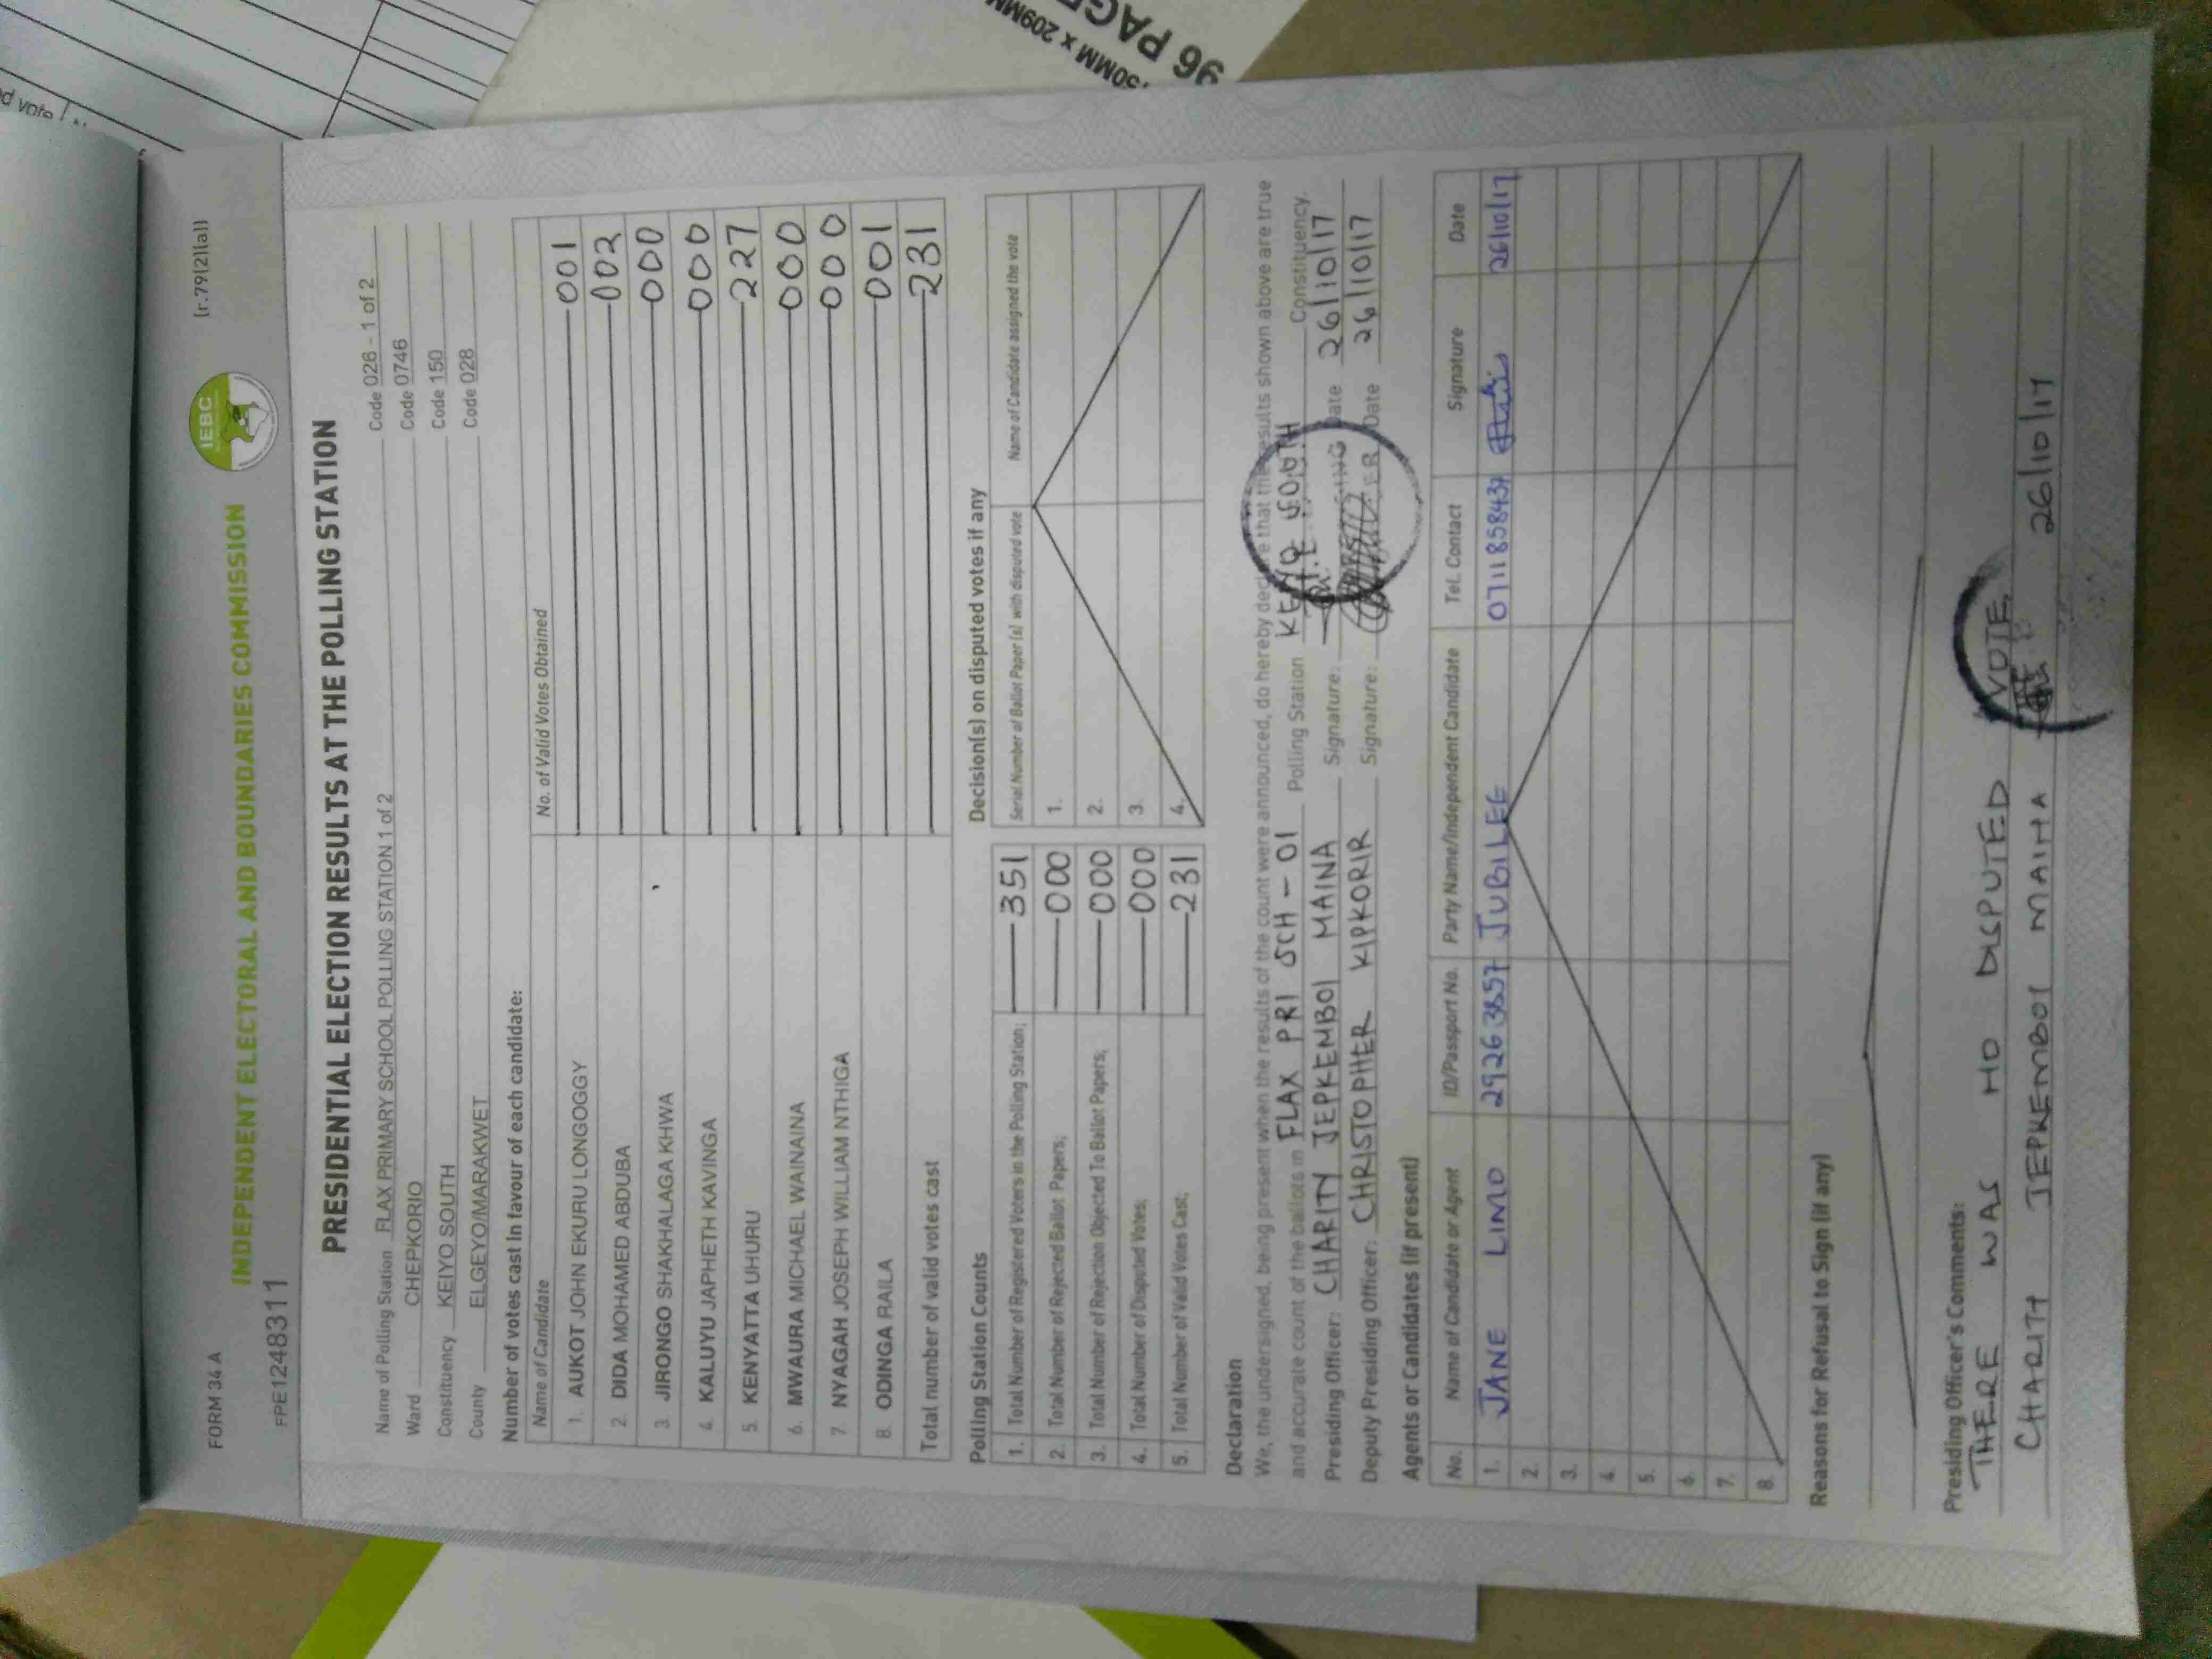 FORM 34 A
(r.79(2)(a))
IEBC
INDEPENDENT ELECTORAL AND BOUNDARIES COMMISSION
FPE1248311
PRESIDENTIAL ELECTION RESULTS AT THE POLLING STATION
Name of Polling Station FLAX PRIMARY SCHOOL POLLING STATION 1 of 2 Code 026 - 1 of 2
Ward CHEPKORIO Code 0746
Constituency KEIYO SOUTH Code 150
County ELGEYO/MARAKWET Code 028
Number of votes cast in favour of each candidate:
Name of Candidate No. of Valid Votes Obtained
1. AUKOT JOHN EKURU LONGOGGY 001
2. DIDA MOHAMED ABDUBA 002
3. JIRONGO SHAKHALAGA KHWA 000
4. KALUYU JAPHETH KAVINGA 000
5. KENYATTA UHURU 227
6. MWAURA MICHAEL WAINAINA 000
7. NYAGAH JOSEPH WILLIAM NTHIGA 000
8. ODINGA RAILA 001
Total number of valid votes cast 231
Polling Station Counts
1. Total Number of Registered Voters in the Polling Station; 351
2. Total Number of Rejected Ballot Papers; 000
3. Total Number of Rejection Objected To Ballot Papers; 000
4. Total Number of Disputed Votes; 000
5. Total Number of Valid Votes Cast; 231
Decision(s) on disputed votes if any
Serial Number of Ballot Paper (s) with disputed vote Name of Candidate assigned the vote
1.
2.
3.
4.
Declaration
We, the undersigned, being present when the results of the count were announced, do hereby declare that the results shown above are true
and accurate count of the ballots in FLAX PRI SCH - 01 Polling Station KEIYO SOUTH Constituency.
Presiding Officer: CHARITY JEPKEMBOI MAINA Signature: Date 26/10/17
Deputy Presiding Officer: CHRISTOPHER KIPKORIR Signature: Date 26/10/17
Agents or Candidates (if present)
No. Name of Candidate or Agent ID/Passport No. Party Name/Independent Candidate Tel. Contact Signature Date
1. JANE LIMO 29263857 JUBILEE 0711858437 26/10/17
2.
3.
4.
5.
6.
7.
8.
Reasons for Refusal to Sign (if any)
Presiding Officer's Comments:
THERE WAS NO DISPUTED VOTE
CHARITY JEPKEMBOI MAINA 26/10/17
96 PAGE
50MM x 209MM
d vote